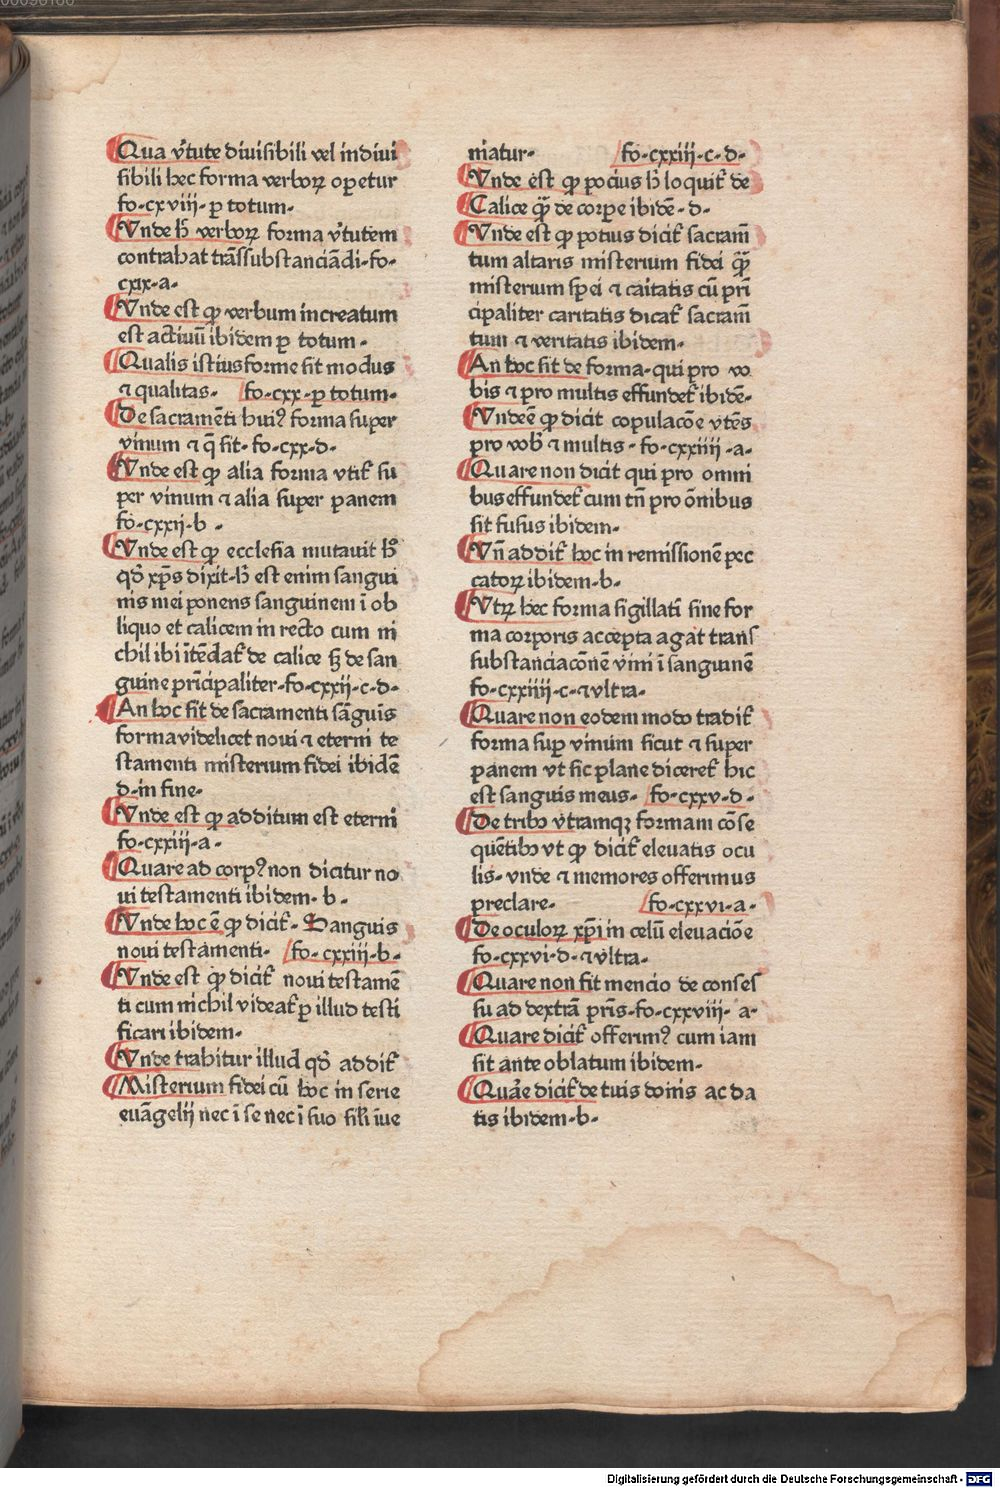 Qua v̓tute diuisibili vel indiui
sibili hec forma verboꝝ opetur
fo·cxviii· ꝑ totum·
Vnde h̓ verboꝝ forma v̓tutem
contrahat trãssubstanciãdi·fo·
cxix·a·
Vnde est qꝫ verbum increatum
est actiuũ ibidem ꝑ totum·
Qualis istius forme sit modus
⁊ qualitas· fo·cxx·ꝑ totum·
De sacramẽti huiꝰ forma super
vinum ⁊ q̃ sit· fo·cxx·d·
Vnde est qꝫ alia forma vtit̉ su
per vinum ⁊ alia super panem
fo·cxxij·b·
Vnde est qꝫ ecclesia mutauit h̓
qd̓ xp̃s dixit·h̓ est enim sangui
nis mei ponens sanguinem ĩ ob
liquo et calicem in recto cum ni
chil ibi ĩtẽdat̉ de calice sꝫ de san
guine prĩcipaliter·fo·cxxij·c·d·
An hoc sit de sacramenti sãguis
forma videlicet noui ⁊ eterni te
stamenti misterium fidei ibidẽ
d·in fine·
Vnde est qꝫ additum est eterni
fo·cxxiii·a·
Quare ad corpꝰ non dicitur no
ui testamenti ibidem· b·
Vnde hoc ẽ qꝫ dicit̉· Sanguis
noui testamenti· fo·cxxiii·b·
Vnde est qꝫ dicit̉ noui testamẽ
ti cum nichil videat̉ ꝑ illud testi
ficari ibidem·
Vnde trahitur illud qd̓ addit̉
Misterium fidei cũ hoc in serie
euãgelij nec ĩ se nec ĩ suo sil̓i ĩue
niatur· fo·cxxiii·c·d·
Vnde est qꝫ pocius h̓ loquit̉ de
Calice q̃ꝫ de corpe ibidẽ·d·
Vnde est qꝫ potius dicit̉ sacram̃
tum altaris misterium fidei q̃ꝫ
misterium sp̃ei ⁊ caitatis cũ pri
cipaliter caritatis dicat̉ sacram̃
tum ⁊ veritatis ibidem·
An hoc sit de forma·qui pro vo
bis ⁊ pro multis effundet̉ ibidẽ·
Vnde ẽ qꝫ dicit copulacõe vtẽs
pro vob̓ ⁊ multis· fo·cxxiiii·a·
Quare non dicit qui pro omni
bus effundet̉ cum tñ pro õnibus
sit fusus ibidem·
Vñ addit̉ hoc in remissionẽ pec
catoꝝ ibidem·b·
Vtꝝ hec forma sigillati sine for
ma corporis accepta agat trans
substanciacõnẽ vini ĩ sanguinẽ
fo·cxxiiii·c·⁊ vltra·
Quare non eodem modo tradit̉
forma suꝑ vinum sicut ⁊ super
panem vt sic plane diceret̉ hic
est sanguis meus· fo·cxxv·d·
De tribꝰ v̓tramqꝫ formam cõse
quẽtibꝰ vt qꝫ dicit̉ eleuatis ocu
lis· vnde ⁊ memores offerimus
preclare· fo·cxxvi·a·
De oculoꝝ xp̃i in celũ eleuaciõe
fo·cxxvi·d·⁊ vltra·
Quare non fit mencio de conses
su ad dextrã pr̃is·fo·cxxviii· a·
Quare dicit̉ offerimꝰ cum iam
sit ante oblatum ibidem·
Quãe dicit̉ de tuis donis ac da
tis ibidem·b·
Digitalisierung gefördert durch die Deutsche Forschungsgemeinschaft - DFG